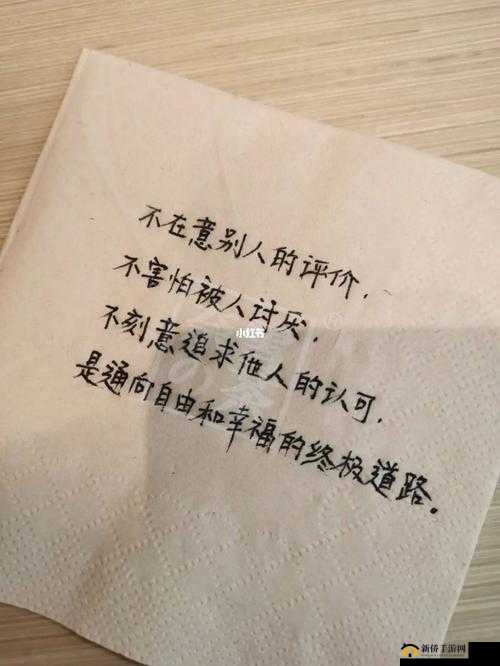 不在意别人的评价,
不害怕被人讨厌,
小红书
不刻意追求他人的认可,
是通向自由和幸福的终极道路。
新侨手游网